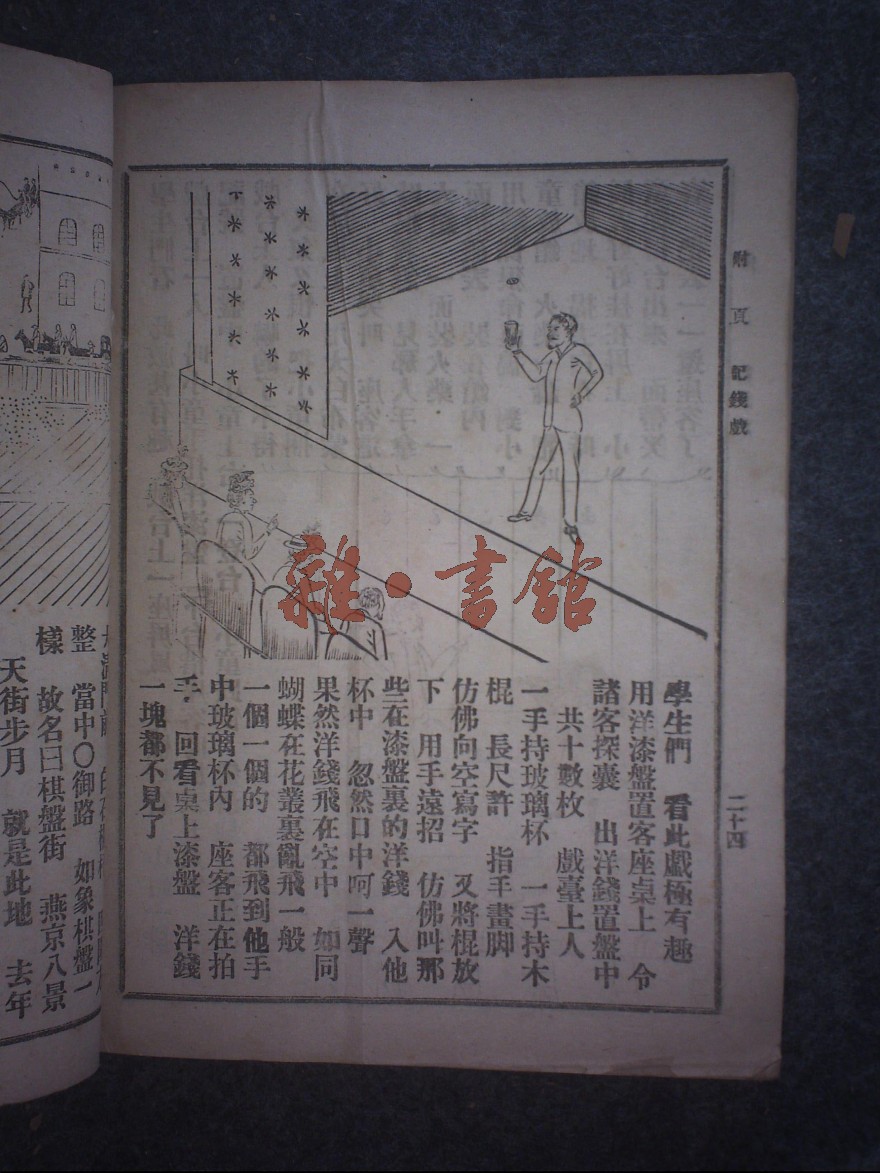 附頁 記錢戲
二十四
學生們 看此戲極有趣
用洋漆盤置客座桌上 令
諸客探囊 出洋錢置盤中
共十數枚 戲臺上人
一手持玻璃杯 一手持木
棍 長尺許 指手畫脚
仿佛向空寫字 又將棍放
下 用手遠招 仿佛叫那
些在漆盤裏的洋錢 入他
杯中 忽然口中呵一聲
果然洋錢飛在空中 如同
蝴蝶在花叢裏亂飛一般
一個一個的 都飛到他手
中玻璃杯內 座客正在拍
手 回看桌上漆盤 洋錢
一塊都不見了
雜·書館
整 當中〇御路 如象棋盤一
樣 故名曰棋盤街 燕京八景
天街步月 就是此地 去年